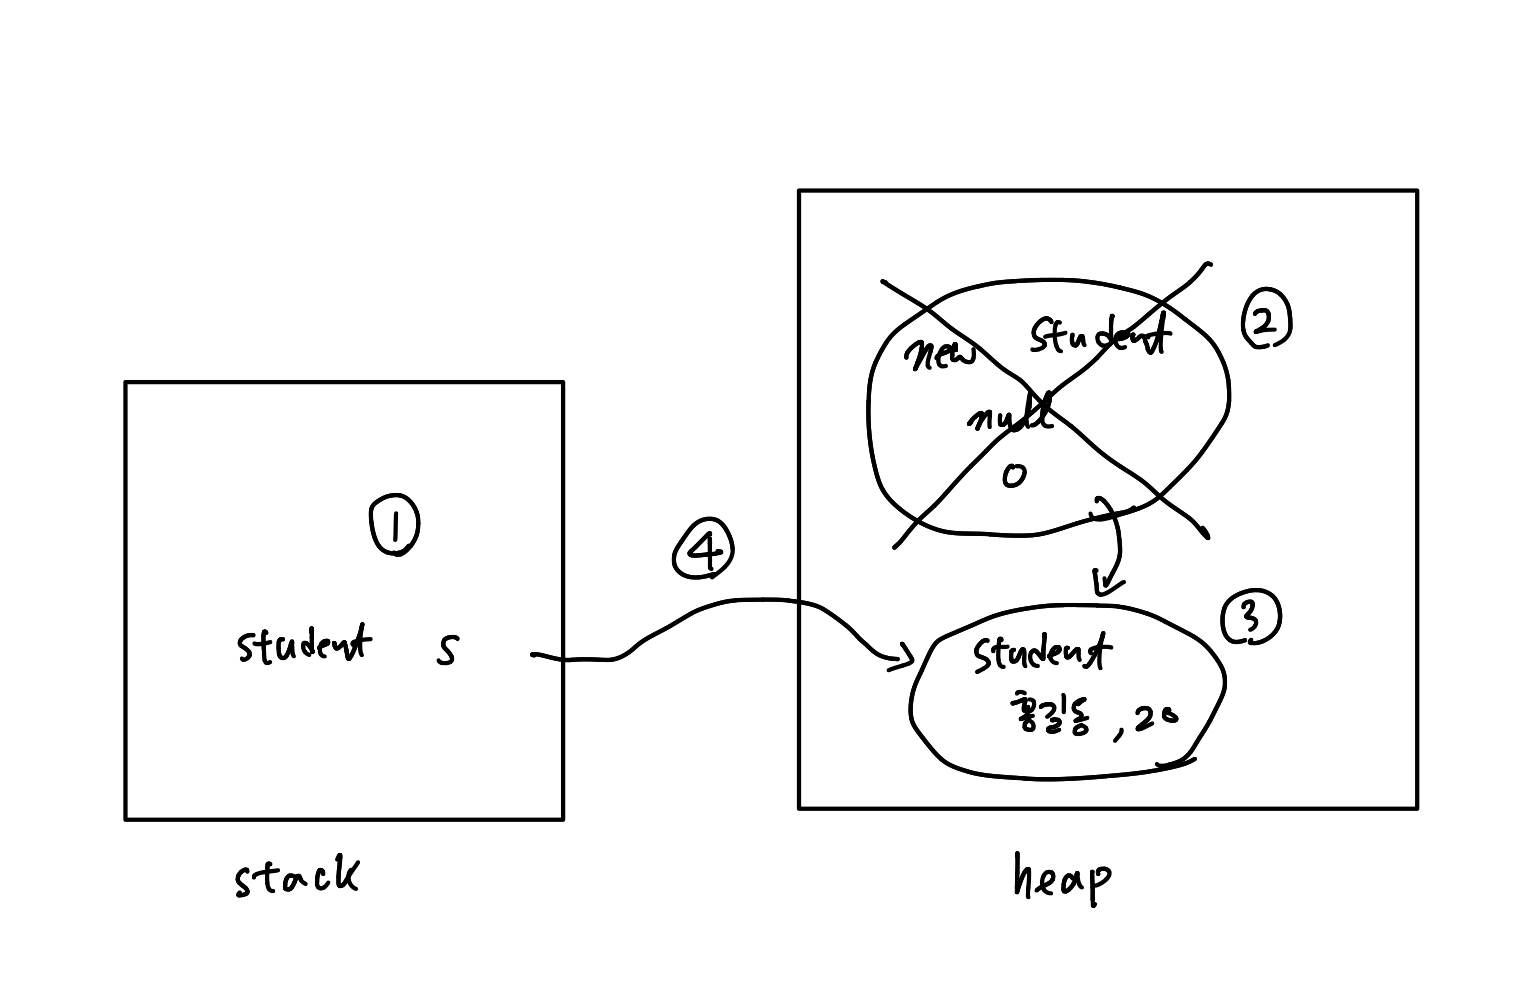 ①
student s
stack
④
②
new student
null
0
③
student
홍길동, 20
heap